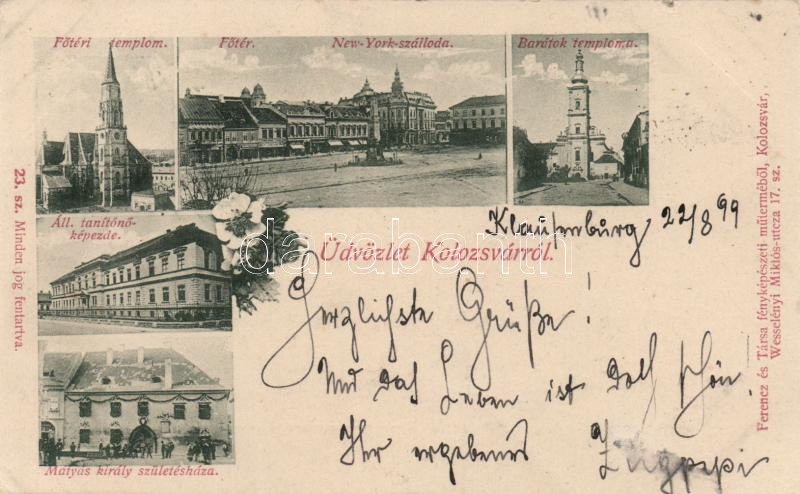 Főtéri templom.
Főtér.
New-York-szálloda.
Barátok temploma.
Áll. tanítónő-
képezde.
Mátyás király születésháza.
Üdvözlet Kolozsvárról.
Klausenburg 22/8 99
Herzlichste Grüße!
Und das Leben ist doch schön.
Ihr ergebenes
23. sz. Minden jog fentartva.
Ferencz és Társa fényképészeti műterméből, Kolozsvár,
Wesselényi Miklós-utcza 17. sz.
darabanth